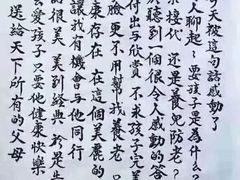 今天被這句話感動了
人聊起：要孩子是為什么？
宗接代 還是養兒防老？
於聽到一個很令人感動的答
付出与欣賞 不求孩子完美
臉 更不用幫我養老
存在 在這個美麗的
讓我有機會与他同行
很美 美到經典 於是
愛孩子 只要他健康快樂
送給天下所有的父母